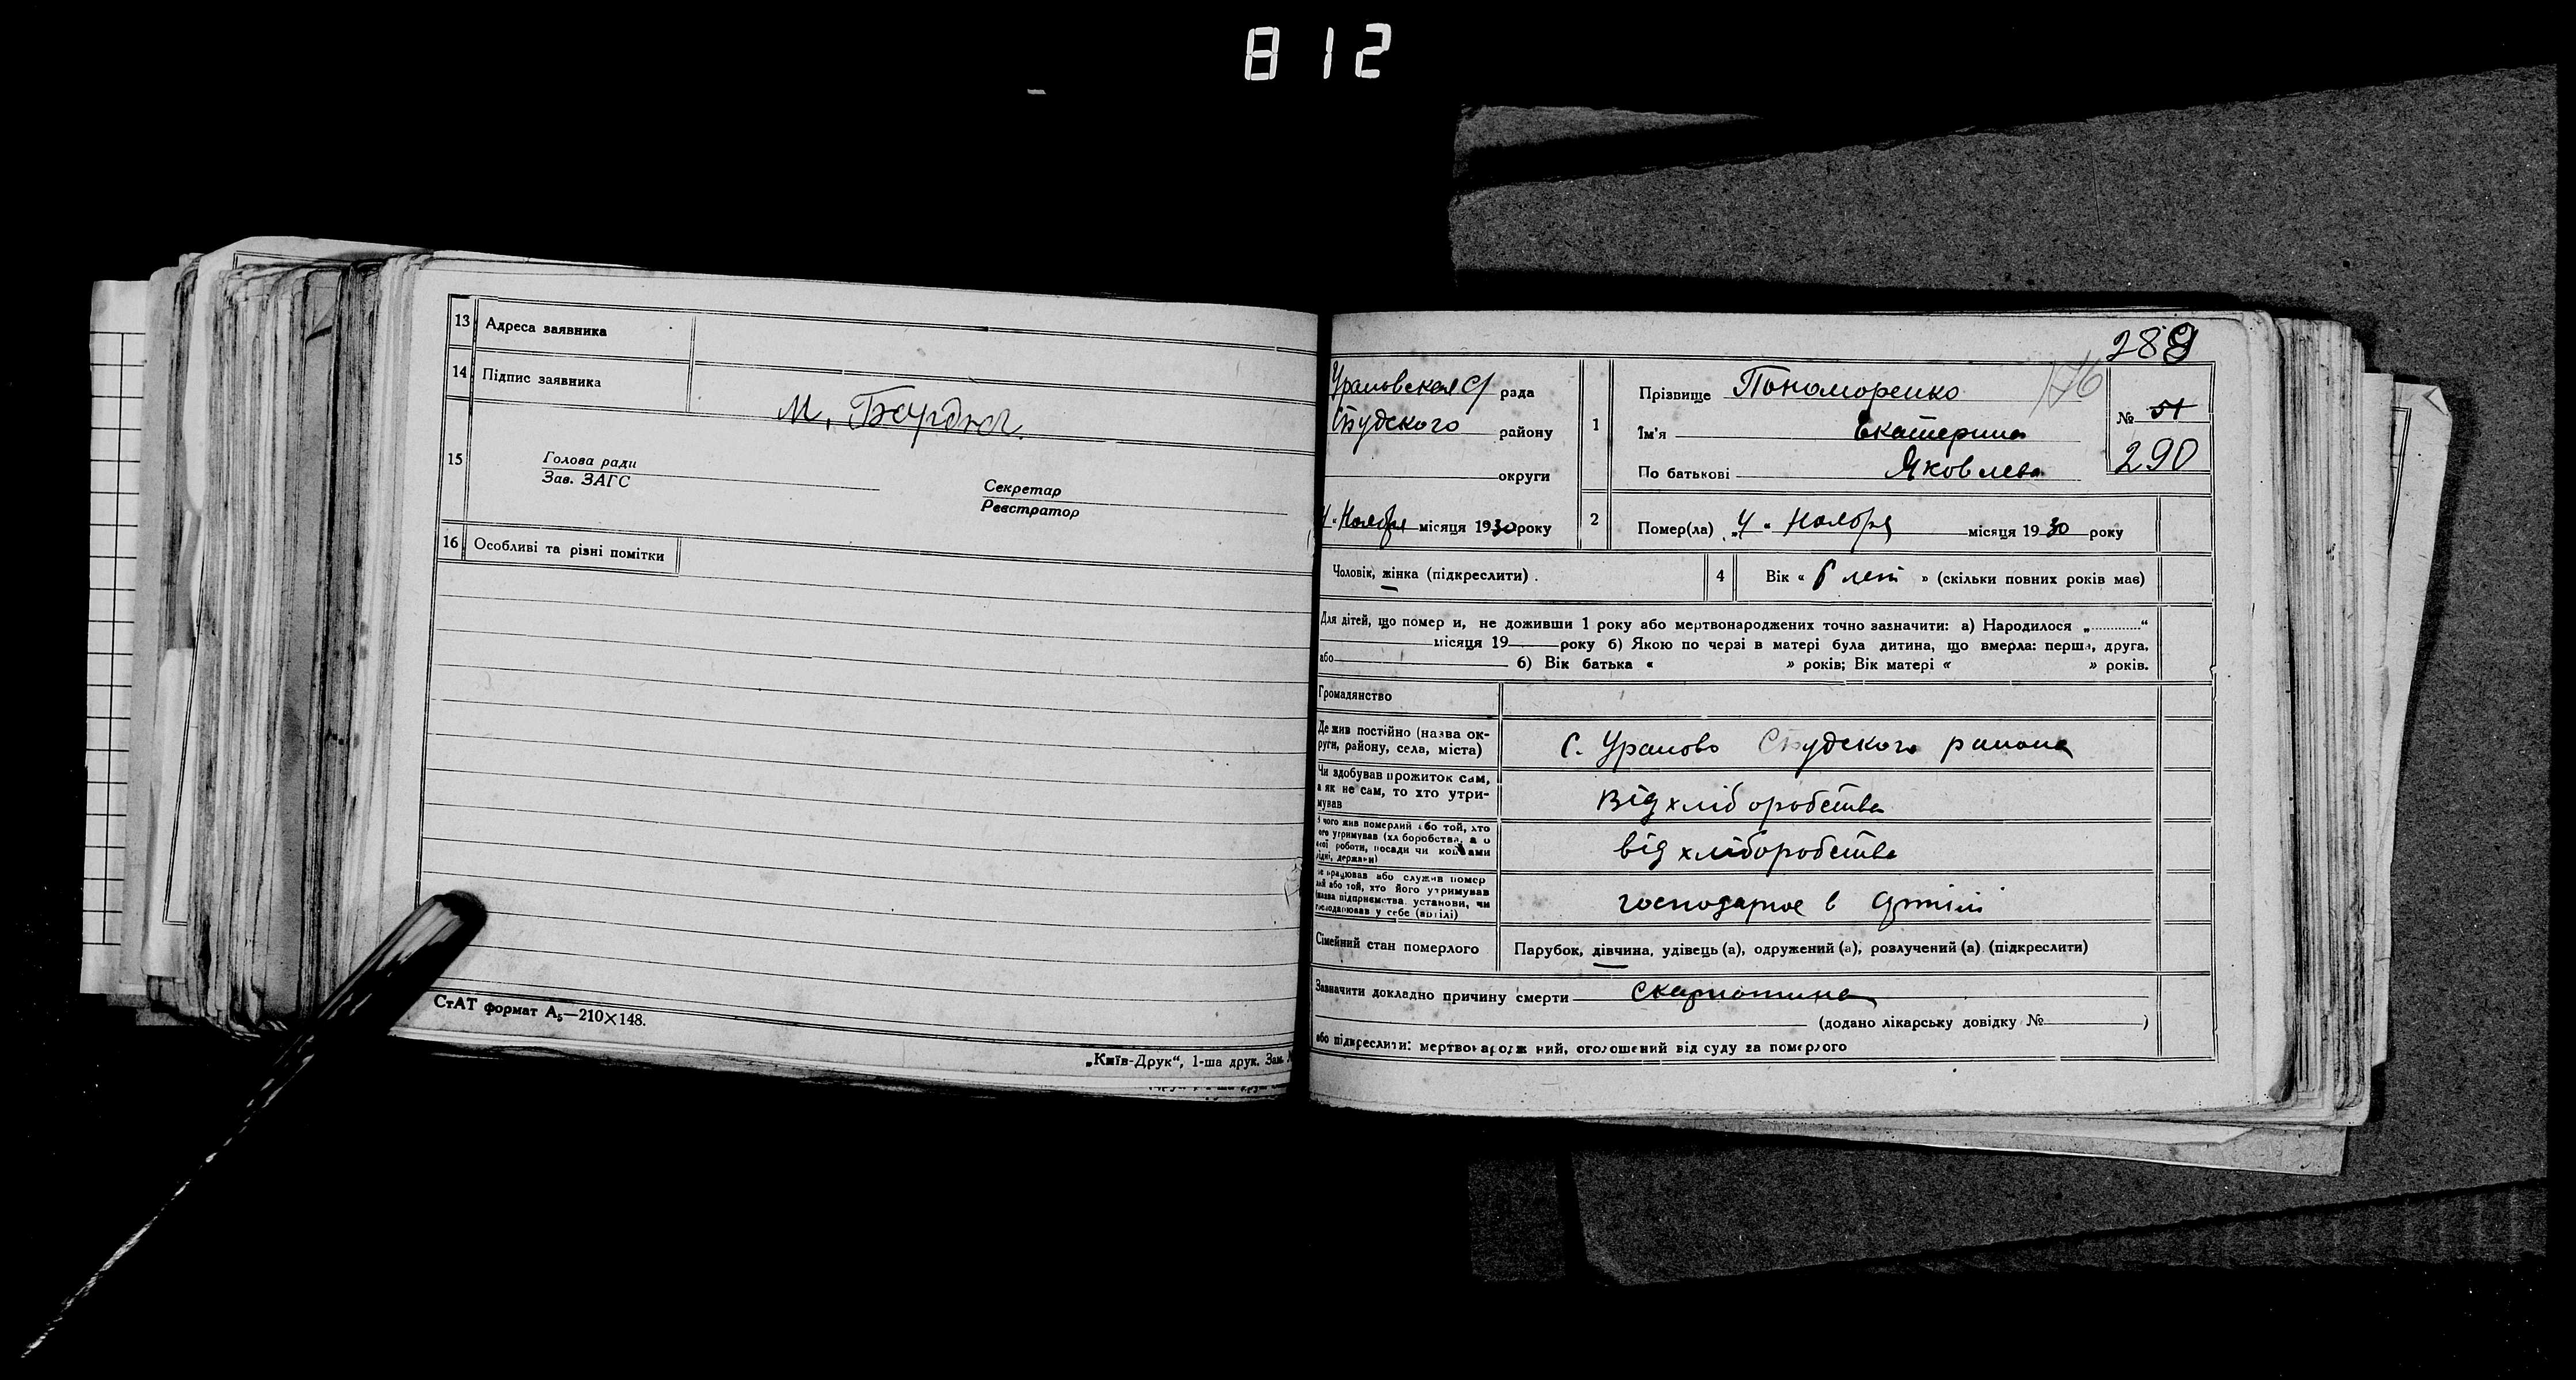 812
13 Адреса заявника
14 Підпис заявника
М. Бардюг.
15 Голова ради
Зав. ЗАГС
Секретар
Реєстратор
16 Особливі та різні помітки
СтАТ формат А₅—210×148.
„Київ-Друк“, 1-ша друк. Зам.
289
176
Ураповская С/ рада
району
округи
1 Прізвище Пономоренко
Ім'я Екатерина
По батькові Яковлева
№ 51
290
4 „ Ноября місяця 1930 року
2 Помер(ла) „4 „ Ноября місяця 19 30 року
Чоловік, жінка (підкреслити).
4 Вік « 6 лет » (скільки повних років має)
Для дітей, що помер и, не доживши 1 року або мертвонароджених точно зазначити: а) Народилося „............“
місяця 19 року б) Якою по черзі в матері була дитина, що вмерла: перша, друга,
або б) Вік батька « » років; Вік матері « » років.
Громадянство
Де жив постійно (назва ок-
руги, району, села, міста)
с. Урапово района
Чи здобував прожиток сам,
а як не сам, то хто утри-
мував
Від хліб оробства
З чого жив померлий або той, хто
його утримував (хл боробства, а о
якої роботи, посади чи коштами
рідні, держави)
від хліборобства
Де працював або служив помер
лий або той, хто його утримував
(назва підприємства установи, чи
господарював у себе (артілі)
господарює в артілі
Сімейний стан померлого
Парубок, дівчина, удівець (а), одружений (а), розлучений (а) (підкреслити)
Зазначити докладно причину смерти скарлатина
(додано лікарську довідку № )
або підкреслити: мертвонародж ний, оголошений від суду за померлого